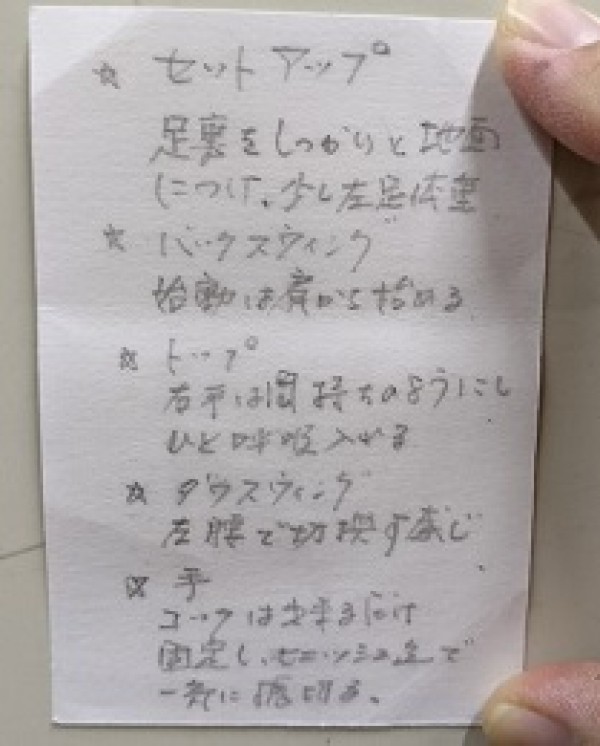 ☆ セットアップ
足裏をしっかりと地面
につけ、少し左足体重
☆ バックスウィング
始動は肩から始める
☆ トップ
右手は岡持ちのようにし
ひと呼吸入れる
☆ ダウスウィング
左腰で切換す感じ
☆ 手
コックは出来るだけ
固定し、
一気に振切る。